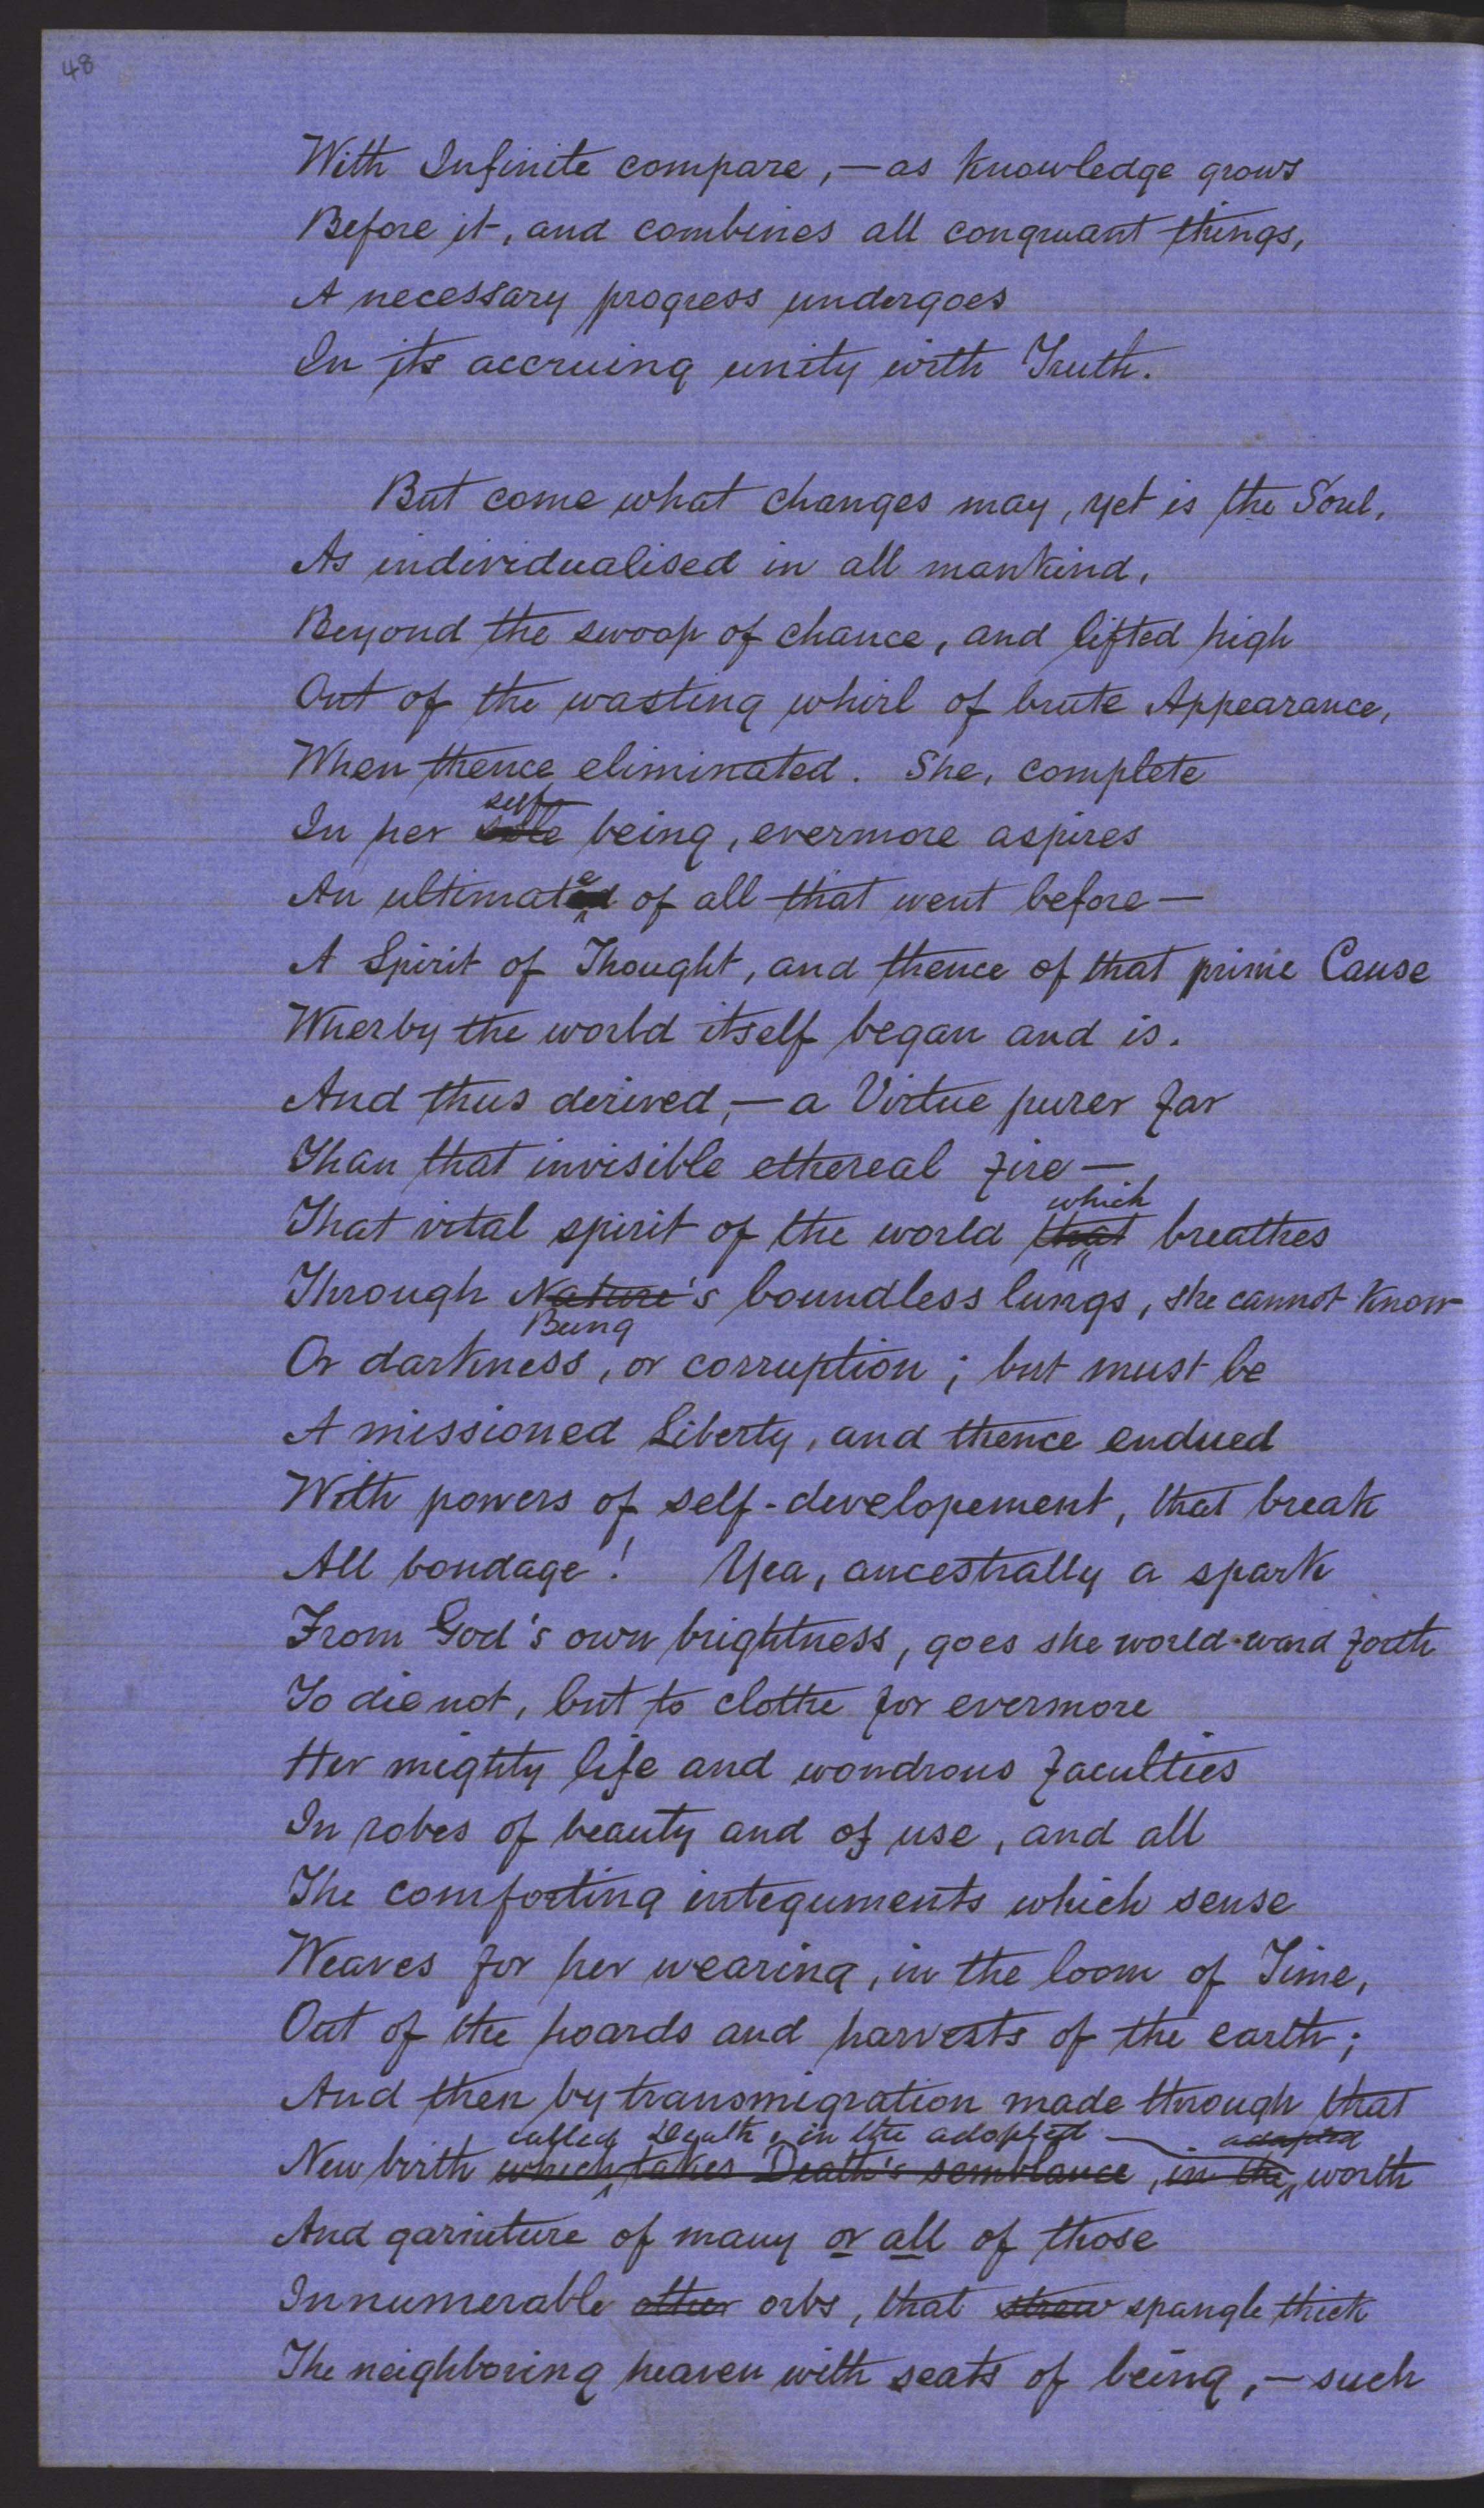 48
With Infinite compare, — as Knowledge grows
Before it, and combines all congruant things,
A necessary progress undergoes
In its accruing unity with Truth.
But come what changes may, yet is the Soul,
As individualised in all mankind,
Beyond the swoop of chance, and lifted high
Out of the wasting whirl of brute Appearance,
When thence eliminated. She, complete
self
In her sole being, evermore aspires
An ultimate of all that went before —
A Spirit of Thought, and thence of that prime Cause
Wherby the world itself began and is.
And thus derived, — a Virtue purer far
Than that invisible ethereal fire —
which
That vital spirit of the world that breathes
Through Nature's boundless lungs, she cannot know
Being
Or darkness, or corruption; but must be
A missioned Liberty, and thence endued
With powers of self-developement, that break
All bondage! Yea, ancestrally a spark
From God's own brightness, goes she world-ward forth
To die not, but to clothe for evermore
Her mighty life and wondrous faculties
In robes of beauty and of use, and all
The comforting integuments which sense
Weaves for her wearing, in the loom of Time,
Out of the hoards and harvests of the earth;
And then by transmigration made through that
called Death, in the adopted — adopted
New birth which takes Death's semblance, in the worth
And garniture of many or all of those
Innumerable other orbs, that strew spangle thick
The neighboring heaven with seats of being, — such